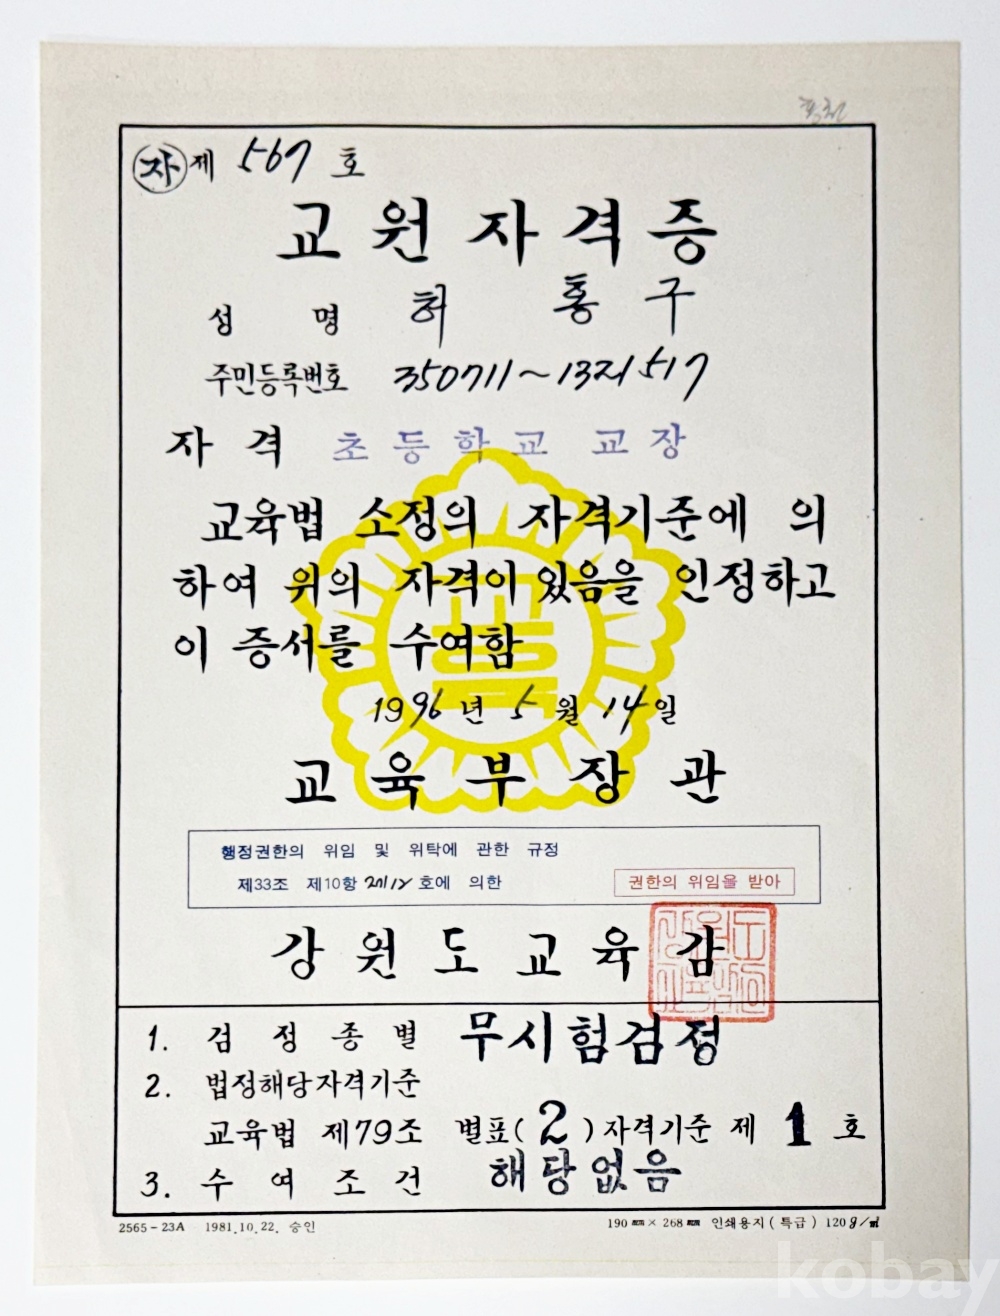 자 제 567 호
교원자격증
성 명 허 홍 구
주민등록번호 350711~1321517
자 격 초등학교 교장
교육법 소정의 자격기준에 의
하여 위의 자격이 있음을 인정하고
이 증서를 수여함
1996년 5월 14일
교 육 부 장 관
행정권한의 위임 및 위탁에 관한 규정
제33조 제10항 호에 의한 권한의 위임을 받아
강 원 도 교 육 감
1. 검 정 종 별 무시험검정
2. 법정해당자격기준
교육법 제79조 별표(2)자격기준 제 1 호
3. 수 여 조 건 해당없음
2565-23A 1981.10.22. 승인 190㎜×268㎜ 인쇄용지(특급) 120g/㎡
kobay